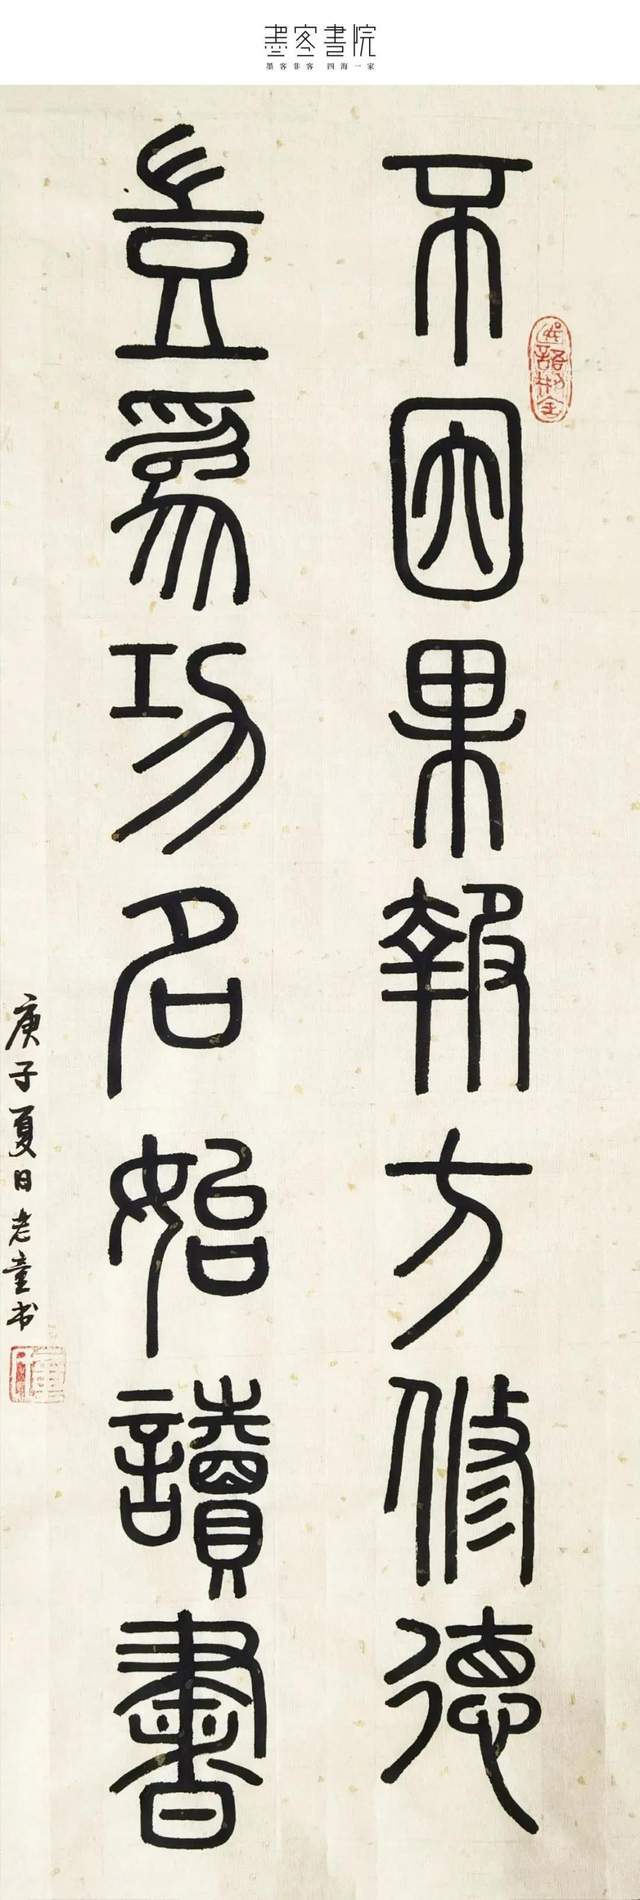 墨客書院
墨客非客 四海一家
不因果報方修德
豈為功名始讀書
庚子夏日老童书